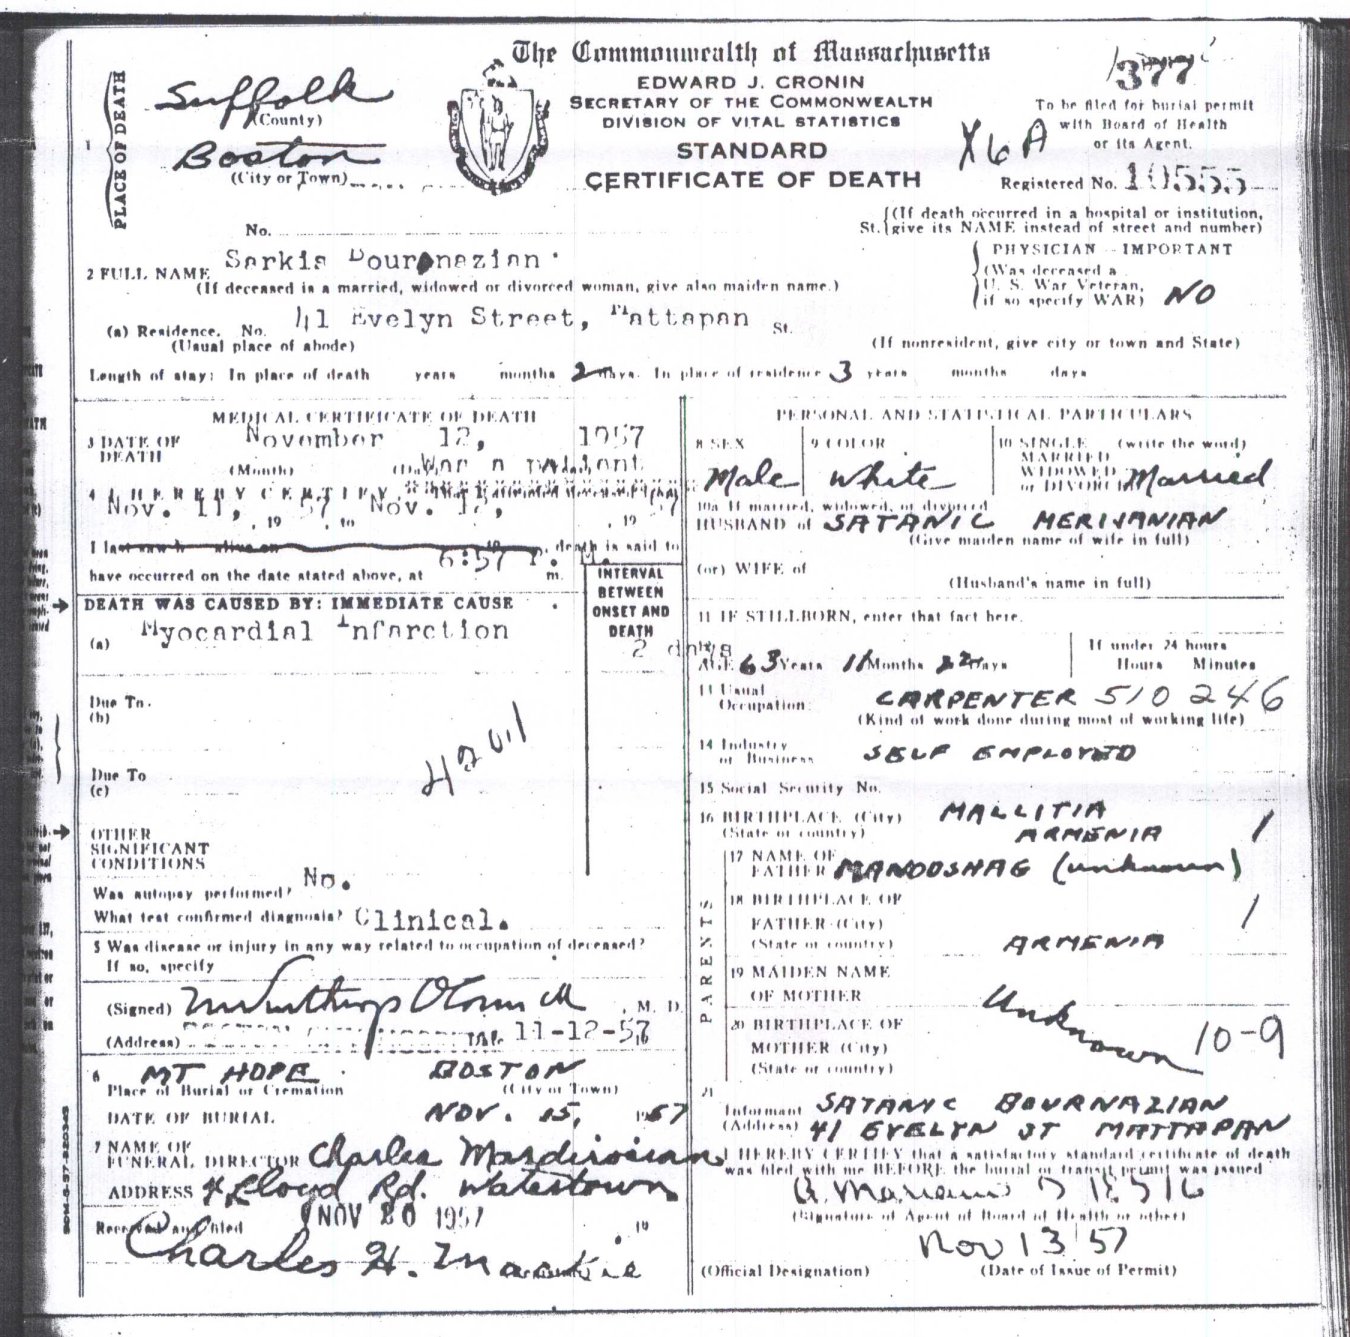 The Commonwealth of Massachusetts
EDWARD J. CRONIN
SECRETARY OF THE COMMONWEALTH
DIVISION OF VITAL STATISTICS
STANDARD
CERTIFICATE OF DEATH
377
To be filed for burial permit
with Board of Health
or its Agent.
X6A
Registered No. 10555
1 PLACE OF DEATH
Suffolk
(County)
Boston
(City or Town)
No.
St. (If death occurred in a hospital or institution,
give its NAME instead of street and number)
2 FULL NAME Sarkis Bournazian
(If deceased is a married, widowed or divorced woman, give also maiden name.)
PHYSICIAN - IMPORTANT
(Was deceased a
U. S. War Veteran,
if so specify WAR) NO
(a) Residence. No. 41 Evelyn Street, Mattapan St.
(Usual place of abode)
(If nonresident, give city or town and State)
Length of stay: In place of death years months 2 days. In place of residence 3 years months days
MEDICAL CERTIFICATE OF DEATH
3 DATE OF DEATH November 12, 1957
(Month) (Day)
Was a patient
4 I HEREBY CERTIFY
Nov. 11, , 19 57, to Nov. 12, , 19 57
I last saw h alive on 19 , death is said to
have occurred on the date stated above, at 6:57 P. M. m.
INTERVAL
BETWEEN
ONSET AND
DEATH
DEATH WAS CAUSED BY: IMMEDIATE CAUSE
(a) Myocardial Infarction 2 days
Due To
(b)
Due To
(c)
OTHER
SIGNIFICANT
CONDITIONS
Was autopsy performed? No.
What test confirmed diagnosis? Clinical.
5 Was disease or injury in any way related to occupation of deceased?
If so, specify
(Signed) , M. D.
(Address) Date 11-12-57 19
6 MT HOPE BOSTON
Place of Burial or Cremation (City or Town)
DATE OF BURIAL NOV. 15, 1957
7 NAME OF
FUNERAL DIRECTOR Charles Mardirosian
ADDRESS 4 Lloyd Rd. Watertown
Received and filed NOV 20 1957 19
Charles H. Mackie
PERSONAL AND STATISTICAL PARTICULARS
8 SEX 9 COLOR 10 SINGLE (write the word)
MARRIED
WIDOWED
or DIVORCED
Male White Married
10a If married, widowed, or divorced
HUSBAND of SATANIC MERIJANIAN
(Give maiden name of wife in full)
(or) WIFE of
(Husband's name in full)
11 IF STILLBORN, enter that fact here.
AGE 63 Years 11 Months 22 Days
If under 24 hours
Hours Minutes
Usual
Occupation: CARPENTER 510 246
(Kind of work done during most of working life)
14 Industry
or Business SELF EMPLOYED
15 Social Security No.
16 BIRTHPLACE (City) MALLITIA
(State or country) ARMENIA 1
PARENTS
17 NAME OF
FATHER MANOOSHAG (unknown)
18 BIRTHPLACE OF
FATHER (City) 1
(State or country) ARMENIA
19 MAIDEN NAME
OF MOTHER Unknown
20 BIRTHPLACE OF
MOTHER (City) 10-9
(State or country)
21
Informant SATANYC BOURNAZIAN
(Address) 41 EVELYN ST MATTAPAN
I HEREBY CERTIFY that a satisfactory standard certificate of death
was filed with me BEFORE the burial or transit permit was issued
(Signature of Agent of Board of Health or other)
Nov 13 57
(Official Designation) (Date of Issue of Permit)